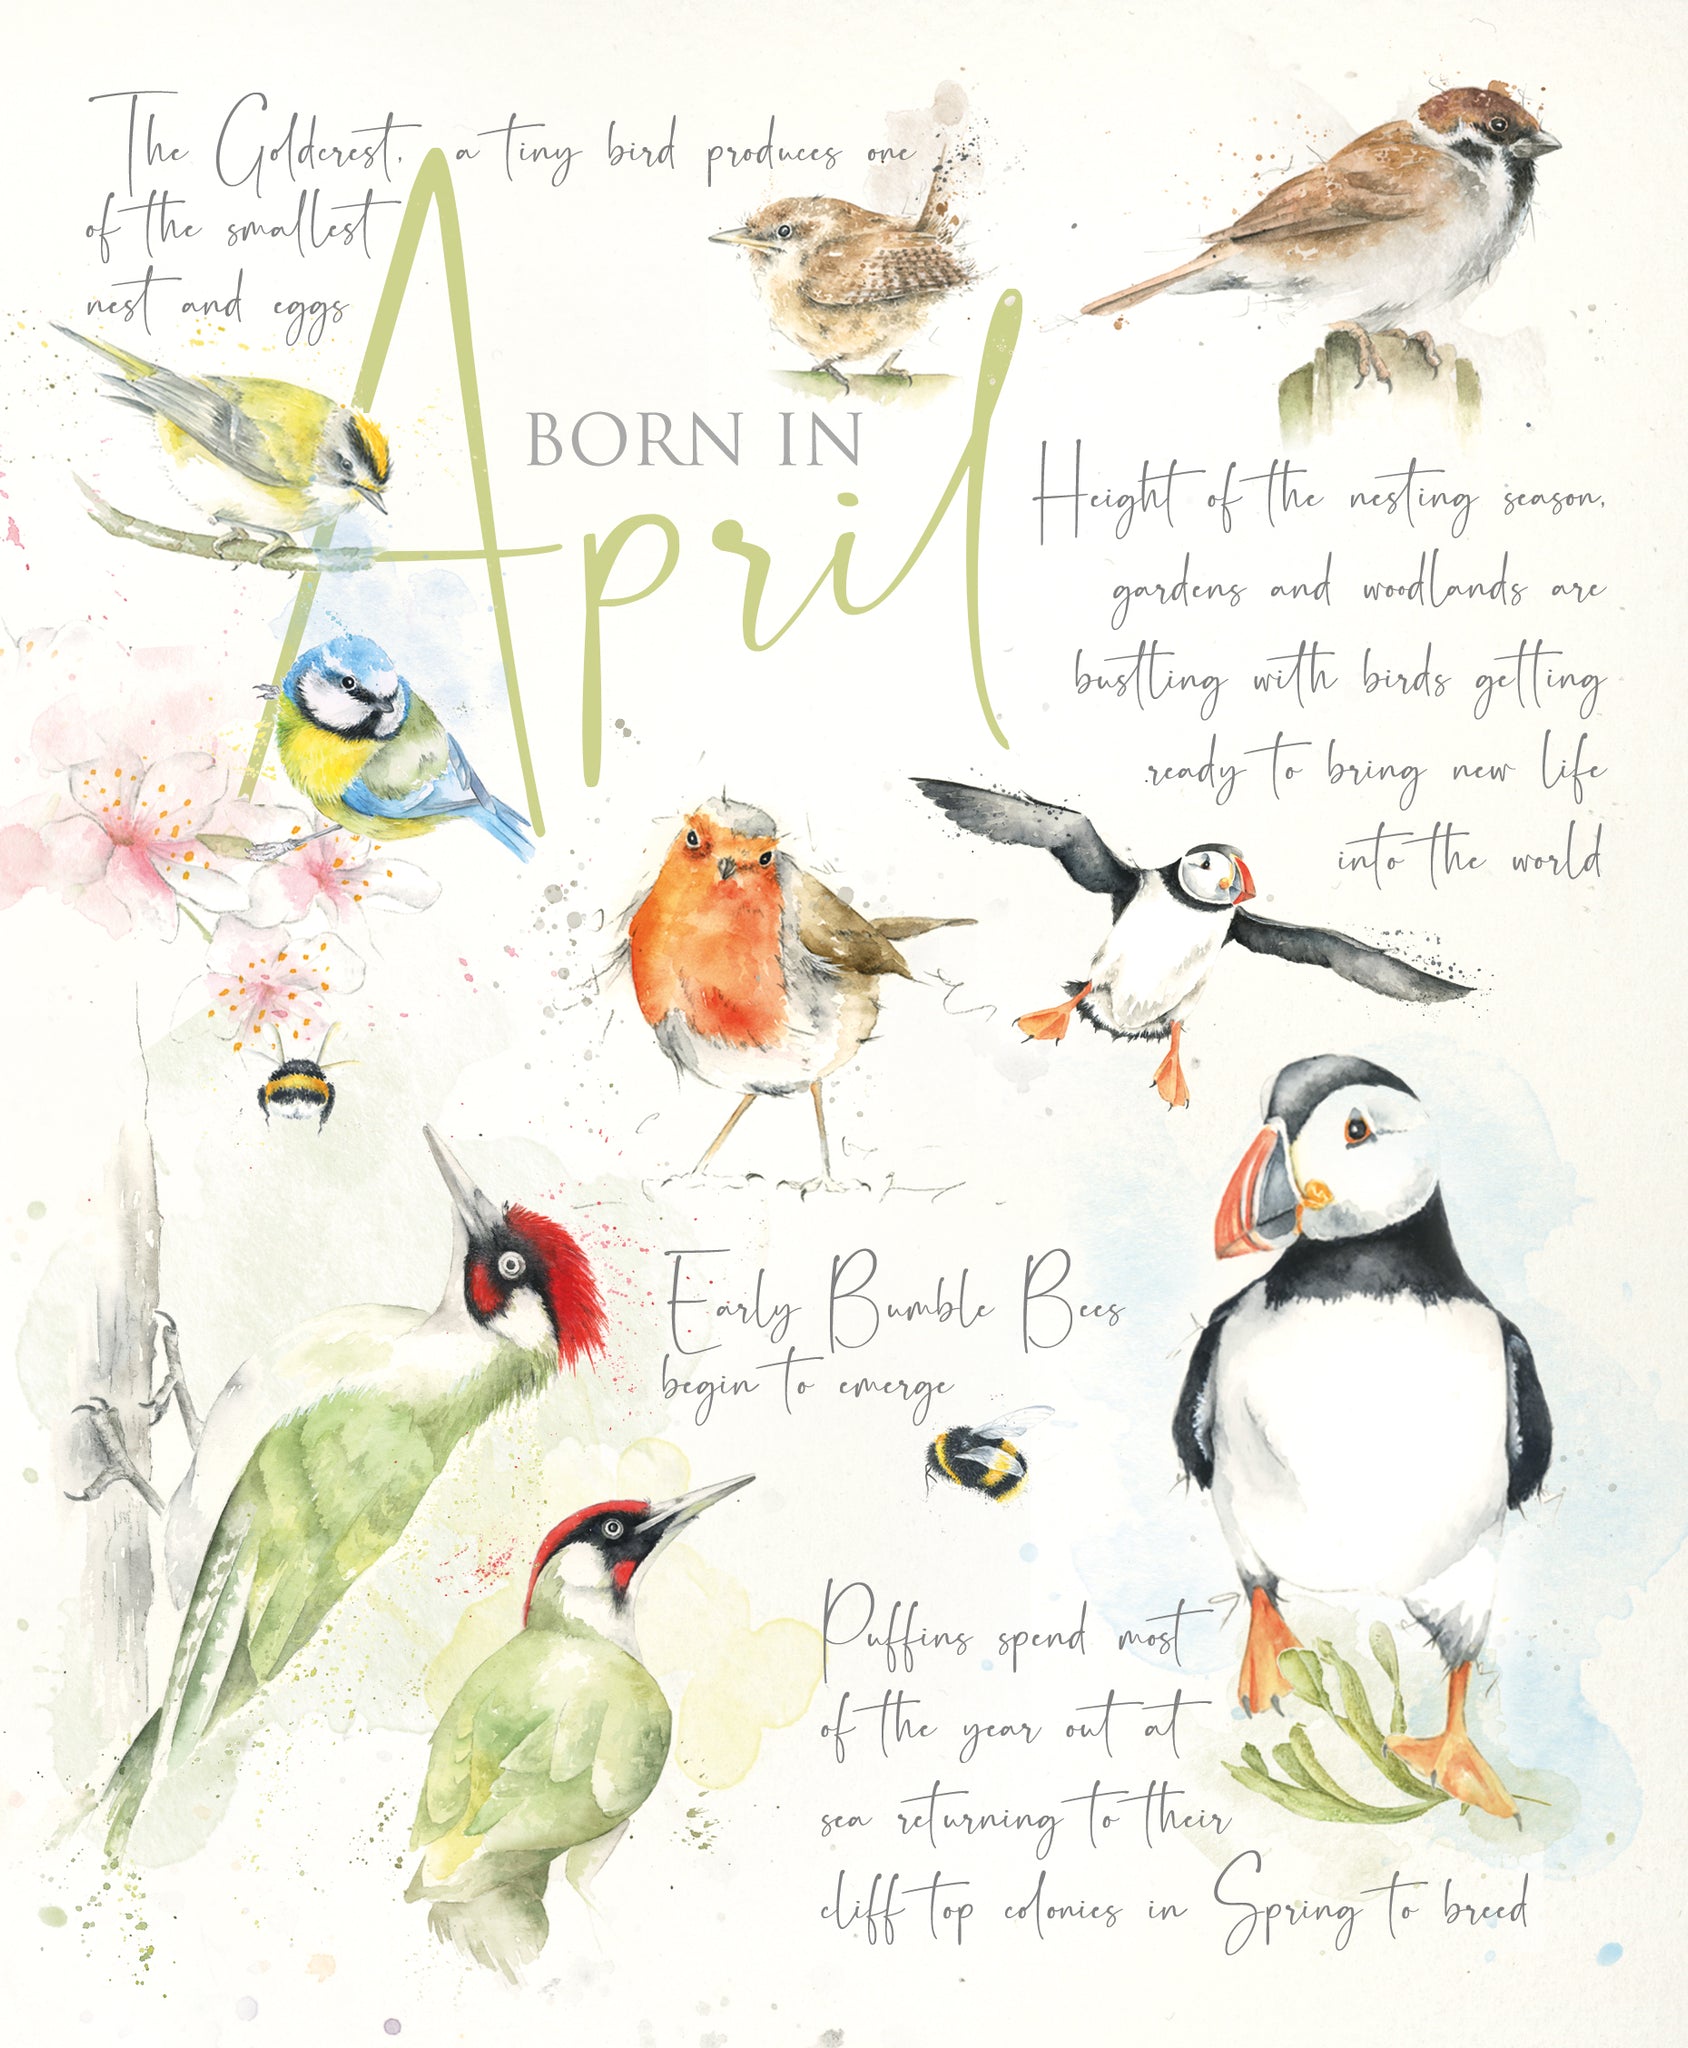 The Goldcrest, a tiny bird produces one
of the smallest
nest and eggs
BORN IN
April
Height of the nesting season,
gardens and woodlands are
bustling with birds getting
ready to bring new life
into the world
Early Bumble Bees
begin to emerge
Puffins spend most
of the year out at
sea returning to their
cliff top colonies in Spring to breed